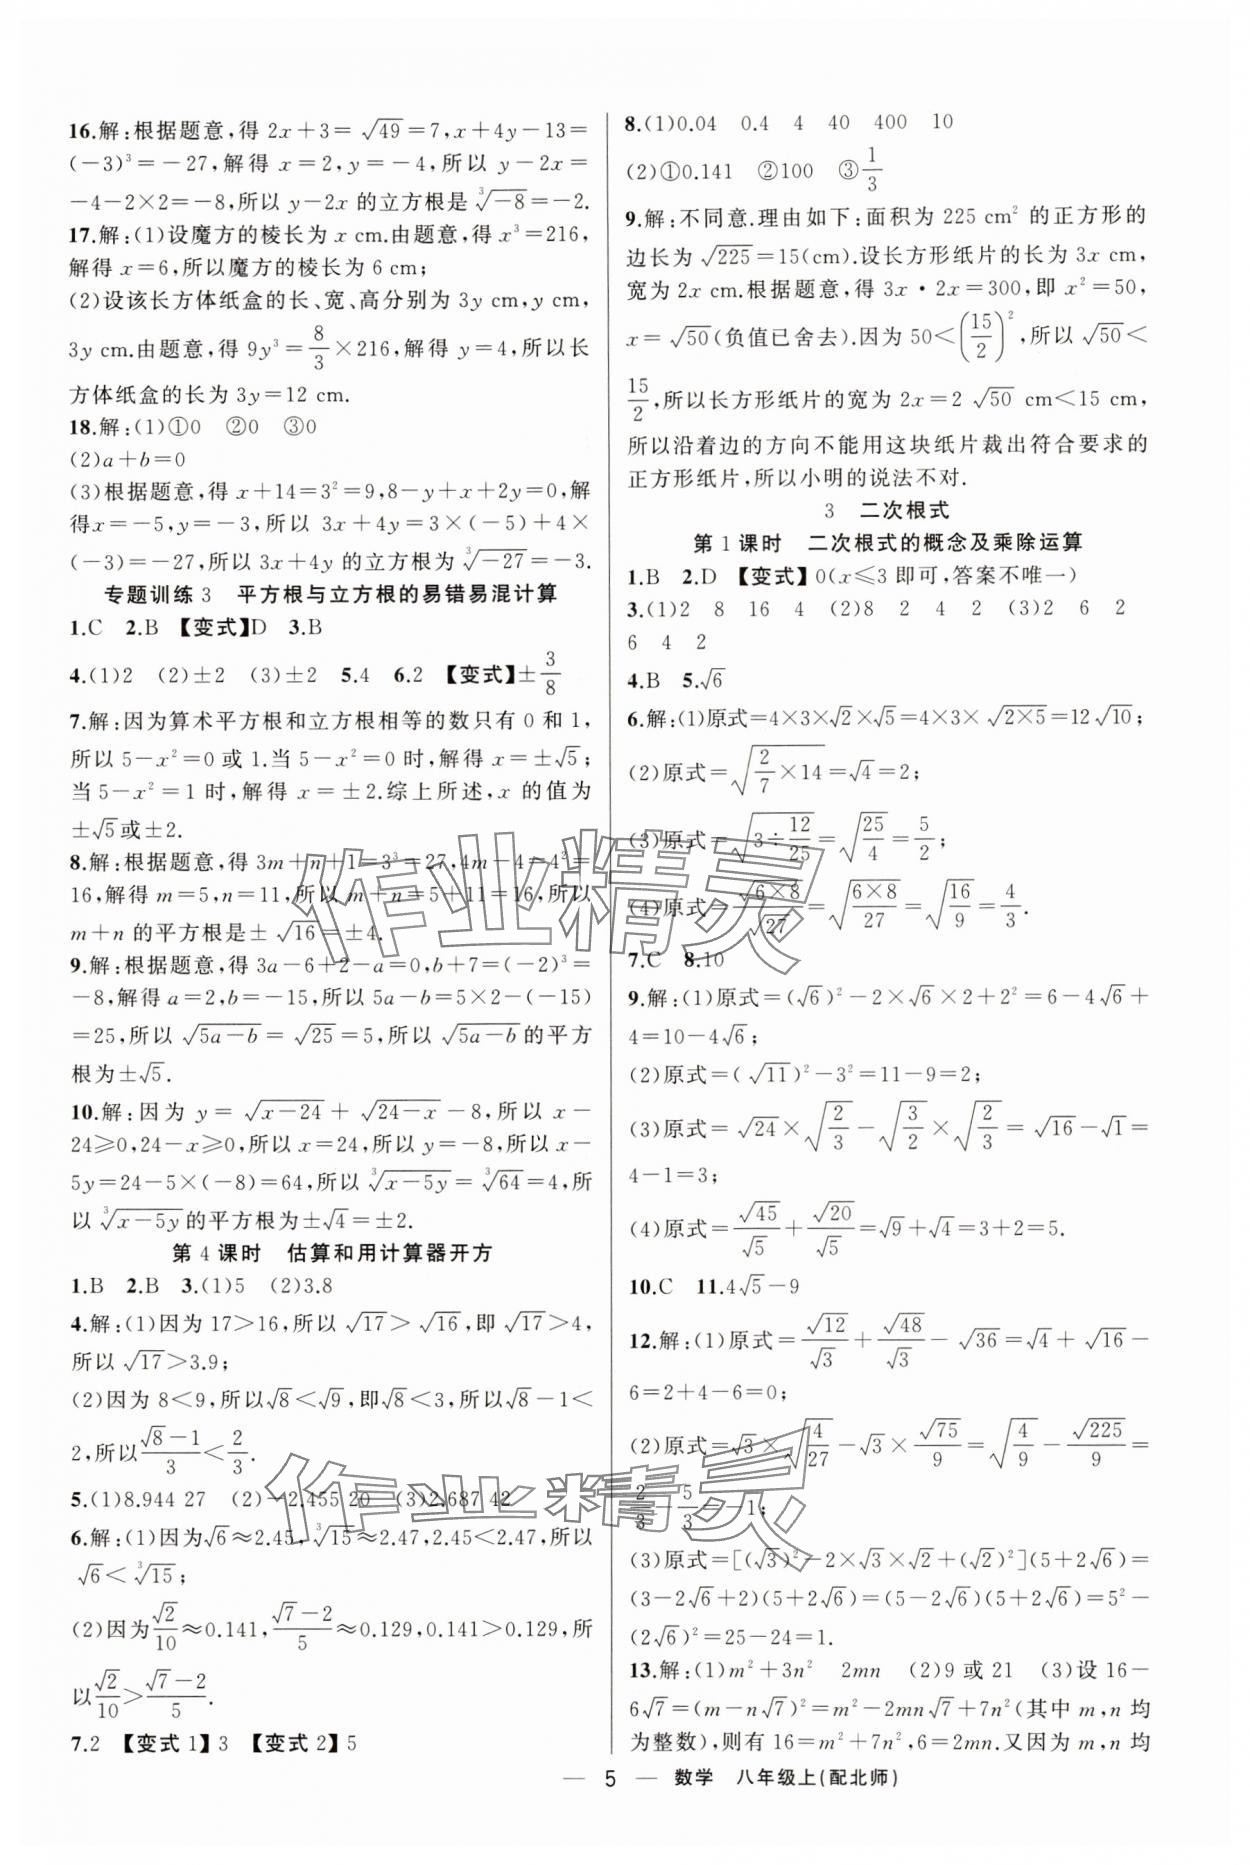 16.解:根据题意,得 2x+3=√49=7,x+4y-13=
(-3)³=-27,解得 x=2,y=-4,所以 y-2x=
-4-2×2=-8,所以 y-2x 的立方根是∛-8=-2.
17.解:(1)设魔方的棱长为 x cm.由题意,得 x³=216,
解得 x=6,所以魔方的棱长为 6 cm;
(2)设该长方体纸盒的长、宽、高分别为 3y cm,y cm,
3y cm.由题意,得 9y³=8/3×216,解得 y=4,所以长
方体纸盒的长为 3y=12 cm.
18.解:(1)①0 ②0 ③0
(2)a+b=0
(3)根据题意,得 x+14=3²=9,8-y+x+2y=0,解
得x=-5,y=-3,所以 3x+4y=3×(-5)+4×
(-3)=-27,所以 3x+4y 的立方根为∛-27=-3.
专题训练 3 平方根与立方根的易错易混计算
1.C 2.B 【变式】D 3.B
4.(1)2 (2)±2 (3)±2 5.4 6.2 【变式】±3/8
7.解:因为算术平方根和立方根相等的数只有 0 和 1,
所以 5-x²=0 或 1.当 5-x²=0 时,解得 x=±√5;
当 5-x²=1 时,解得 x=±2.综上所述,x 的值为
±√5或±2.
8.解:根据题意,得 3m+n+1=3³=27,4m-4=4²=
16,解得 m=5,n=11,所以 m+n=5+11=16,所以
m+n 的平方根是±√16=±4.
9.解:根据题意,得 3a-6+2-a=0,b+7=(-2)³=
-8,解得 a=2,b=-15,所以 5a-b=5×2-(-15)
=25,所以 √(5a-b)=√25=5,所以 √(5a-b)的平方
根为±√5.
10.解:因为 y=√(x-24)+√(24-x)-8,所以 x-
24≥0,24-x≥0,所以 x=24,所以 y=-8,所以 x-
5y=24-5×(-8)=64,所以 ∛(x-5y)=∛64=4,所
以 ∛(x-5y)的平方根为±√4=±2.
第 4 课时 估算和用计算器开方
1.B 2.B 3.(1)5 (2)3.8
4.解:(1)因为 17>16,所以 √17>√16,即 √17>4,
所以 √17>3.9;
(2)因为 8<9,所以√8<√9,即√8<3,所以√8-1<
2,所以(√8-1)/3<2/3.
5.(1)8.944 27 (2)-2.455 20 (3)2.687 42
6.解:(1)因为√6≈2.45,∛15≈2.47,2.45<2.47,所以
√6<∛15;
(2)因为√2/10≈0.141,(√7-2)/5≈0.129,0.141>0.129,所
以√2/10>(√7-2)/5.
7.2 【变式 1】3 【变式 2】5
8.(1)0.04 0.4 4 40 400 10
(2)①0.141 ②100 ③1/3
9.解:不同意.理由如下:面积为 225 cm² 的正方形的
边长为 √225=15(cm).设长方形纸片的长为 3x cm,
宽为 2x cm.根据题意,得 3x·2x=300,即 x²=50,
x=√50(负值已舍去).因为 50<(15/2)²,所以 √50<
15/2,所以长方形纸片的宽为 2x=2√50 cm<15 cm,
所以沿着边的方向不能用这块纸片裁出符合要求的
正方形纸片,所以小明的说法不对.
3 二次根式
第 1 课时 二次根式的概念及乘除运算
1.B 2.D 【变式】0(x≤3 即可,答案不唯一)
3.(1)2 8 16 4 (2)8 2 4 2 (3)2 6 2
6 4 2
4.B 5.√6
6.解:(1)原式=4×3×√2×√5=4×3×√(2×5)=12√10;
(2)原式=√(2/7×14)=√4=2;
(3)原式=√(3÷12/25)=√(25/4)=5/2;
(4)原式=√(6×8)/√27=√(6×8/27)=√(16/9)=4/3.
7.C 8.10
9.解:(1)原式=(√6)²-2×√6×2+2²=6-4√6+
4=10-4√6;
(2)原式=(√11)²-3²=11-9=2;
(3)原式=√24×√(2/3)-√(3/2)×√(2/3)=√16-√1=
4-1=3;
(4)原式=√45/√5+√20/√5=√9+√4=3+2=5.
10.C 11.4√5-9
12.解:(1)原式=√12/√3+√48/√3-√36=√4+√16-
6=2+4-6=0;
(2)原式=√3×√(4/27)-√3×√75/9=√(4/9)-√225/9=
2/3-5/3=-1;
(3)原式=[(√3)²-2×√3×√2+(√2)²](5+2√6)=
(3-2√6+2)(5+2√6)=(5-2√6)(5+2√6)=5²-
(2√6)²=25-24=1.
13.解:(1)m²+3n² 2mn (2)9 或 21 (3)设 16-
6√7=(m-n√7)²=m²-2mn√7+7n²(其中 m,n 均
为整数),则有 16=m²+7n²,6=2mn.又因为 m,n 均
— 5 — 数学 八年级上(配北师)
作业精灵
作业精灵